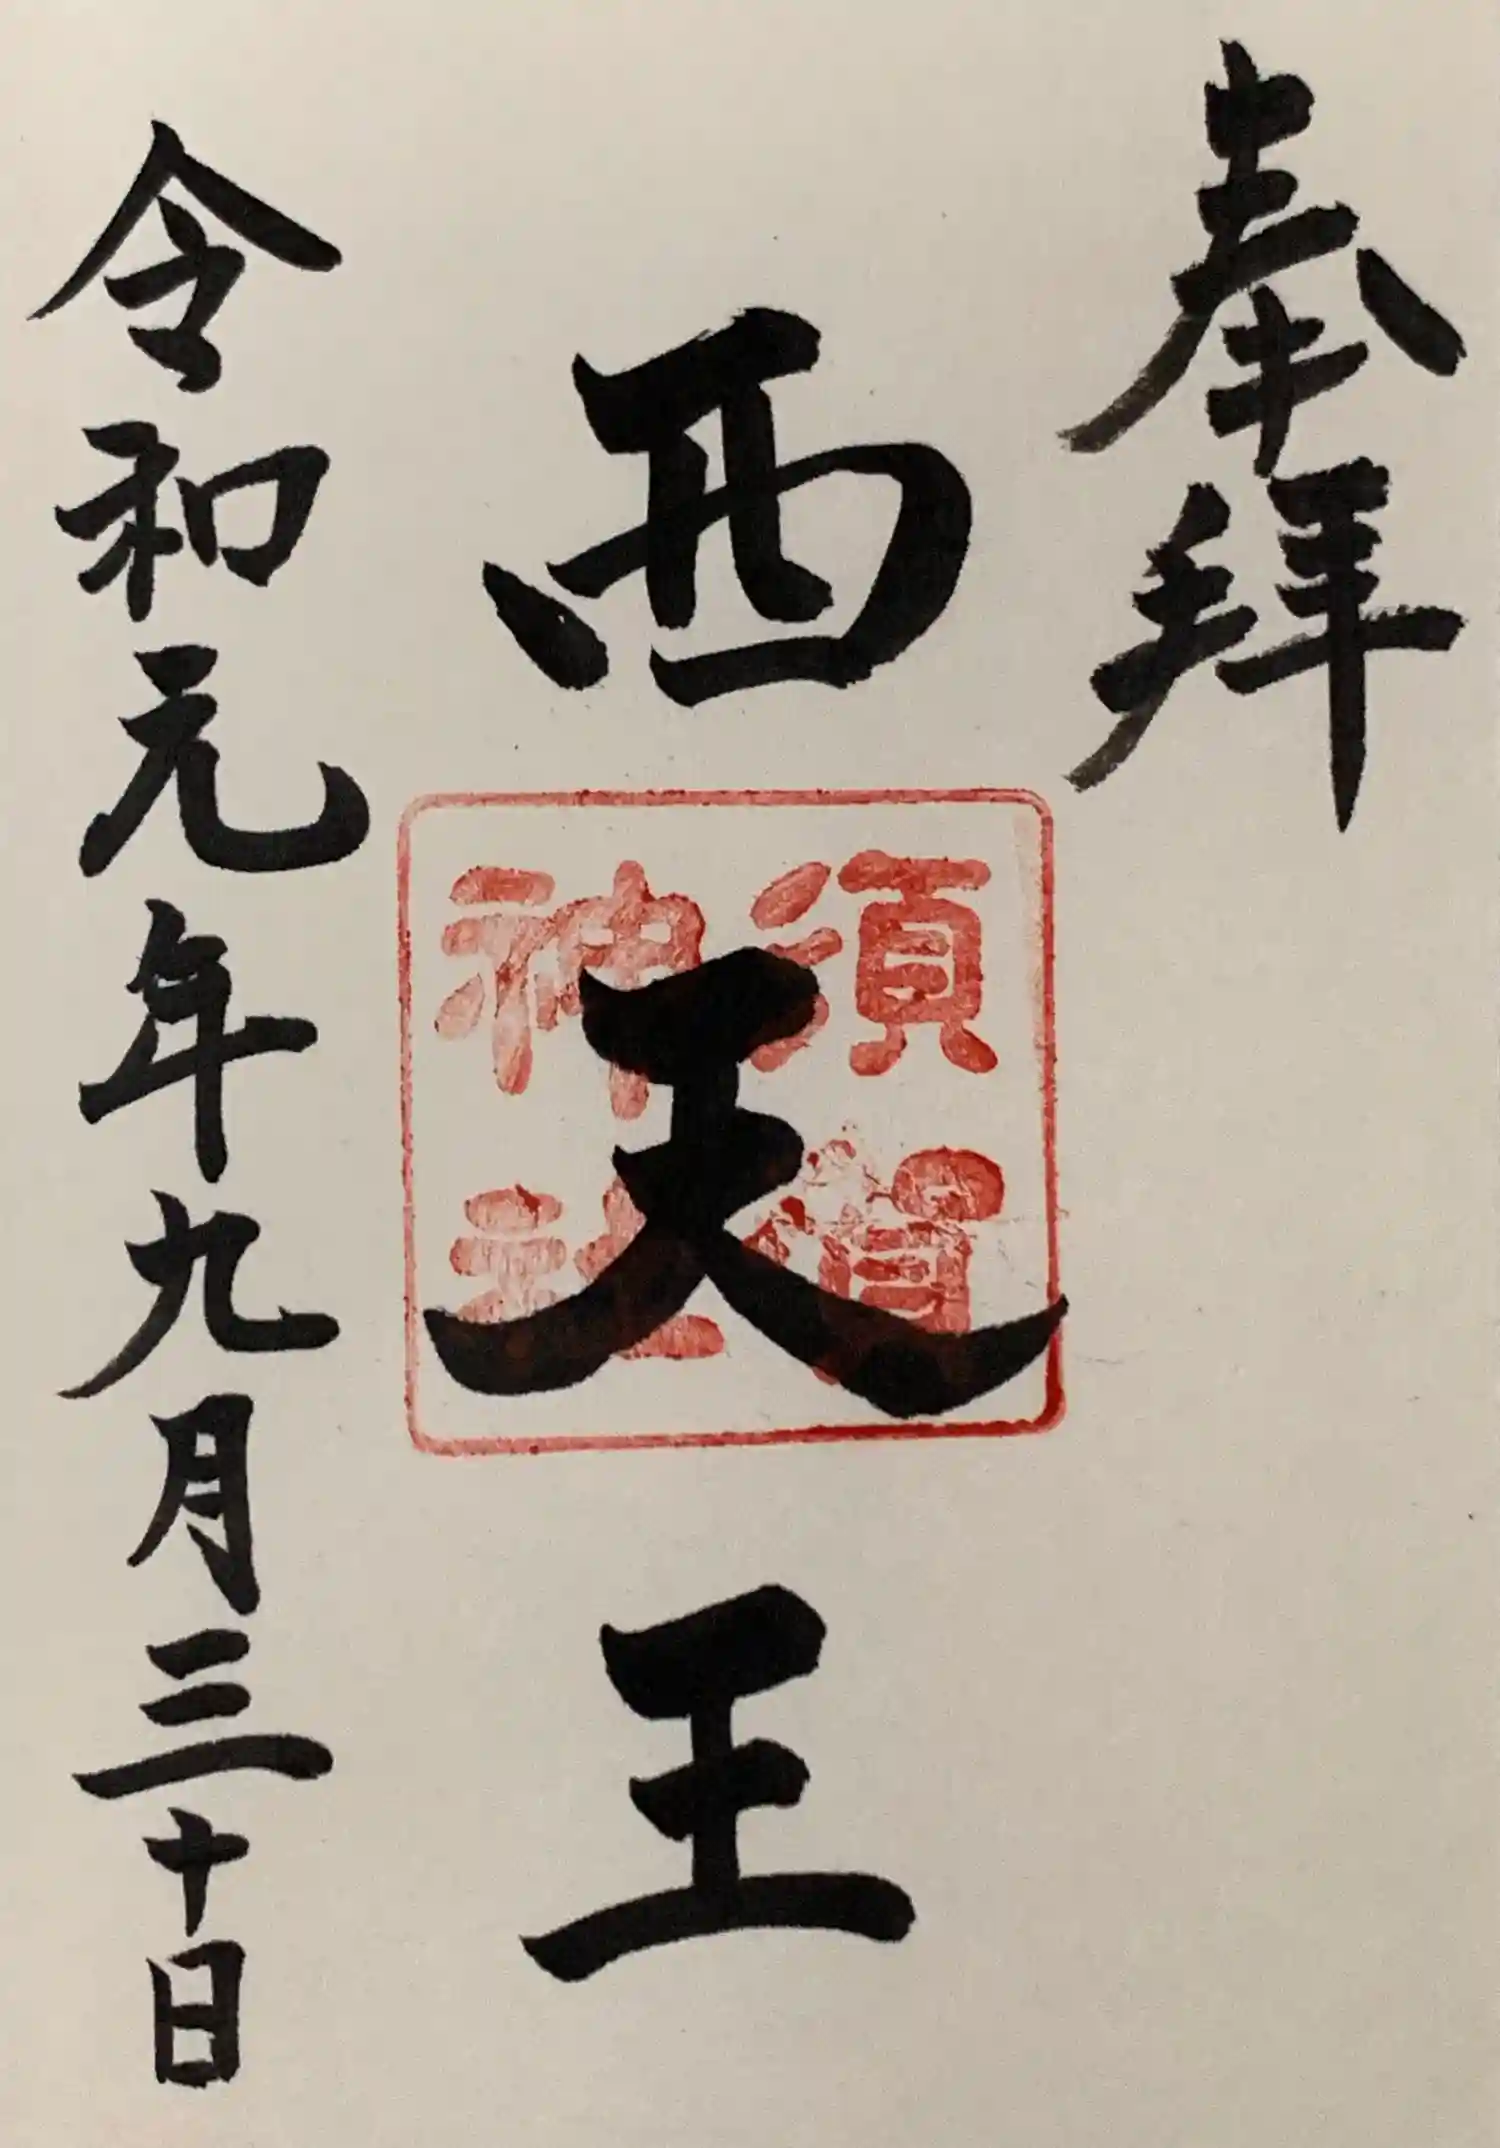 奉拜
西天王
須賀
神社
令和元年九月三十日